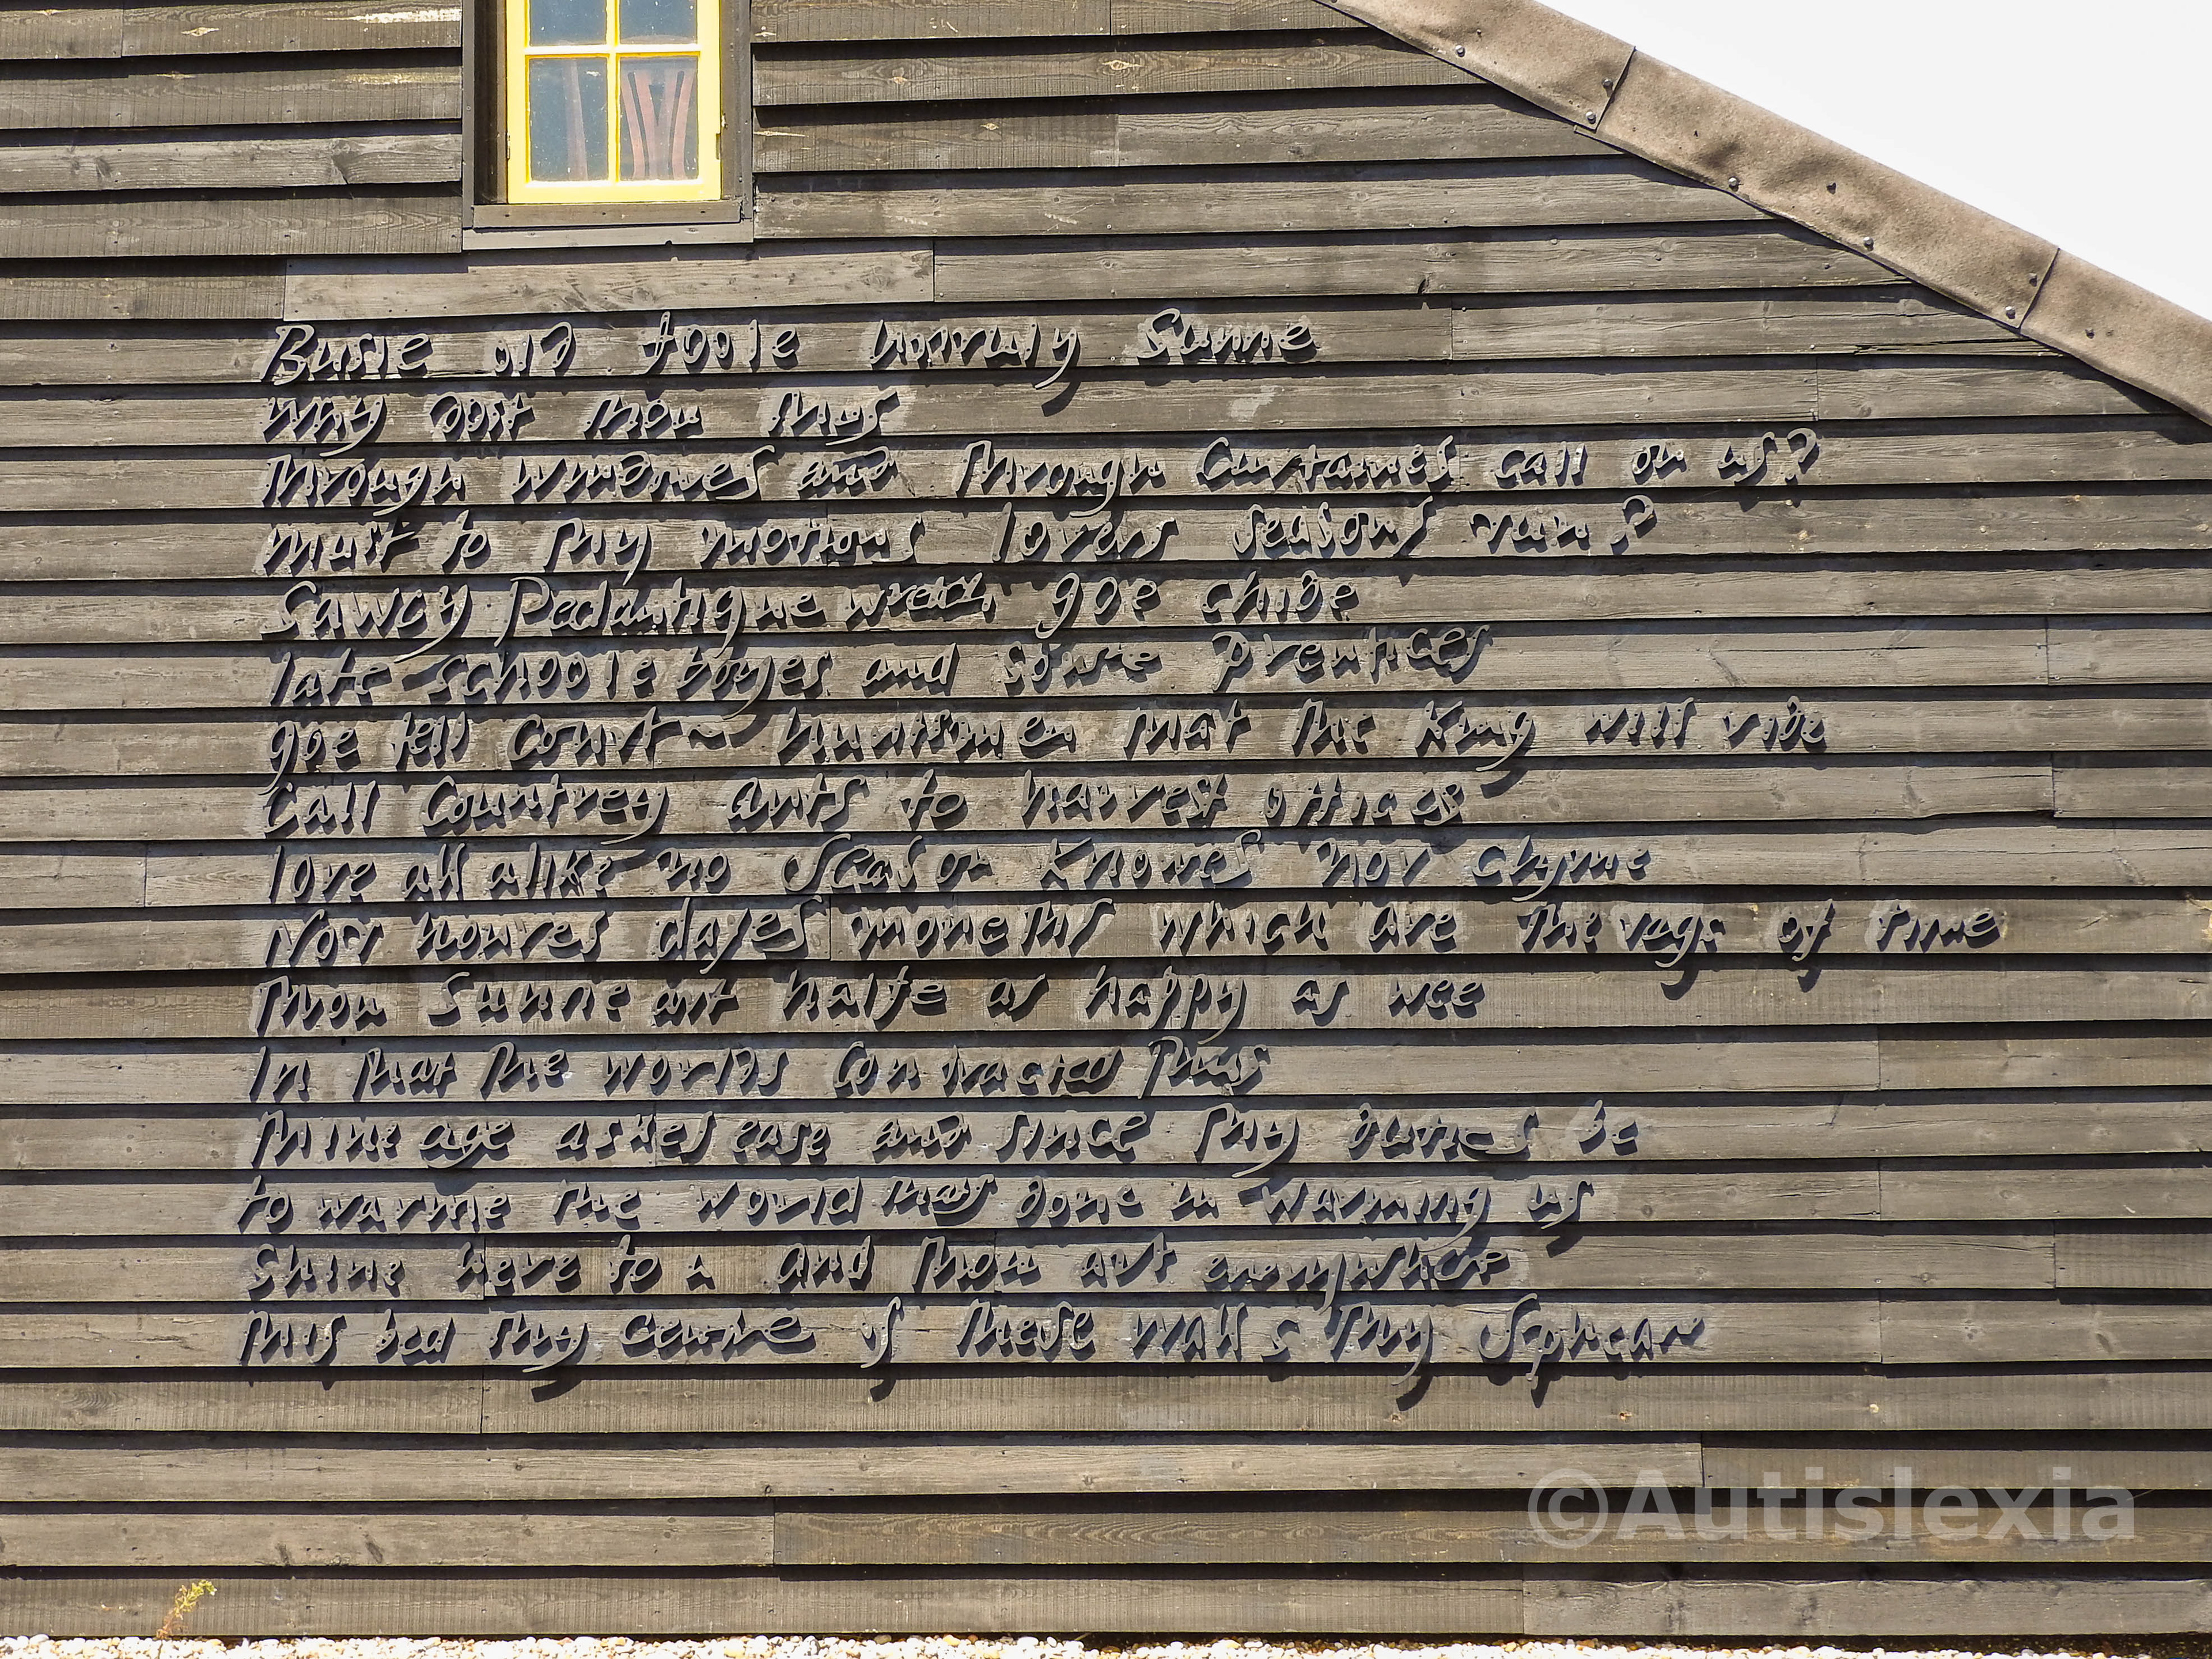 Busie old foole unruly Sunne
Why dost thou thus
Through windowes and through Curtaines call on us?
must to thy motions lovers seasons run?
Sawcy Pedantique wretch goe chide
late schoole boyes and sowre Prentices
goe tell Court huntsmen that the King will ride
Call Countrey ants to harvest offices
love all alike no season knowes nor clyme
Nor houres dayes moneths which are the rags of time
Thou Sunne art halfe as happy as wee
In that the worlds contracted thus
Thine age askes ease and since thy duties be
to warme the world thats done in warming us
Shine here to us and thou art everywhere
This bed thy centre is these walls thy Spheare
©Autislexia